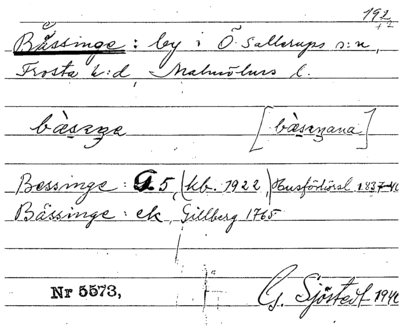 192
Bässinge: by i Ö. Sallerups s:n,
Frosta h:d, Malmöhus l.
bàseŋe [bàseŋana]
Bessinge: G 5, (kb. 1922,) Husförhörsl. 1837-41
Bässinge: ek, Gillberg 1765
Nr 5573, G. Sjöstedt 194